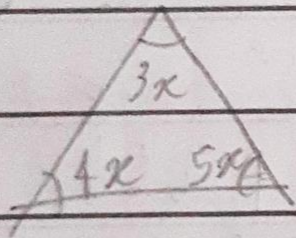 3x
4x 5x